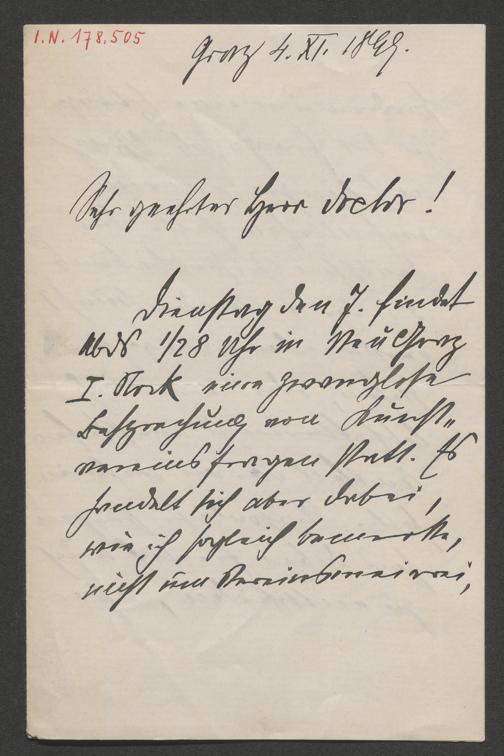 I.N. 178.505
Graz 4. XI. 1899.
Sehr geehrter Herr Doctor!
Dienstag den 7. findet
Abds 1/28 Uhr in NeuGraz
I. Stock eine zwanglose
Besprechung von Kunst-
vereinsfragen statt. Es
handelt sich aber dabei,
wie ich sogleich bemerke,
nicht um Vereinsmeierei,